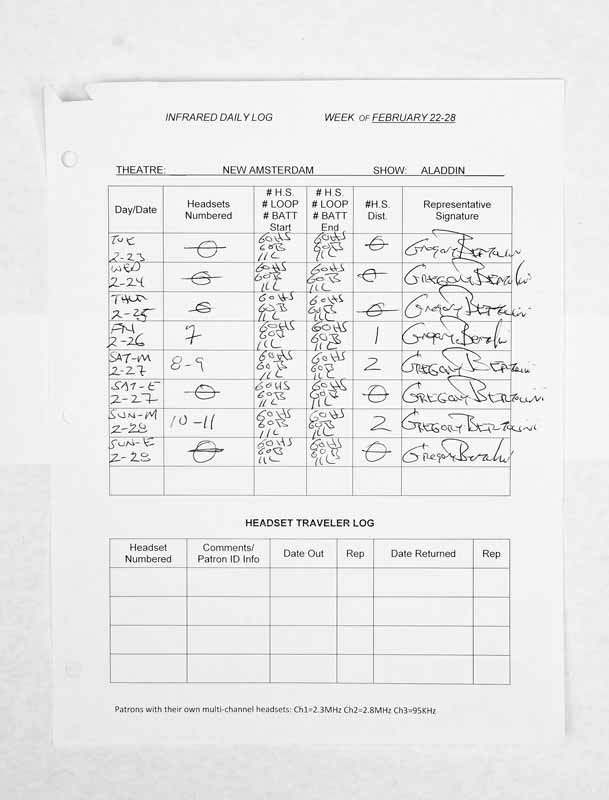 INFRARED DAILY LOG WEEK OF FEBRUARY 22-28
THEATRE: NEW AMSTERDAM SHOW: ALADDIN
Day/Date Headsets Numbered # H.S. # LOOP # BATT Start # H.S. # LOOP # BATT End #H.S. Dist. Representative Signature
TUE 2-23 0 60HS 60B 11L 60HS 60B 11L 0 GREGORY BERTOLINI
WED 2-24 0 60HS 60B 11L 60HS 60B 11L 0 GREGORY BERTOLINI
THUR 2-25 0 60HS 60B 11L 60HS 60B 11L 0 GREGORY BERTOLINI
FRI 2-26 7 60HS 60B 11L 60HS 60B 11L 1 GREGORY BERTOLINI
SAT-M 2-27 8-9 60HS 60B 11L 60HS 60B 11L 2 GREGORY BERTOLINI
SAT-E 2-27 0 60HS 60B 11L 60HS 60B 11L 0 GREGORY BERTOLINI
SUN-M 2-28 10-11 60HS 60B 11L 60HS 60B 11L 2 GREGORY BERTOLINI
SUN-E 2-28 0 60HS 60B 11L 60HS 60B 11L 0 GREGORY BERTOLINI
HEADSET TRAVELER LOG
Headset Numbered Comments/ Patron ID Info Date Out Rep Date Returned Rep
Patrons with their own multi-channel headsets: Ch1=2.3MHz Ch2=2.8MHz Ch3=95KHz